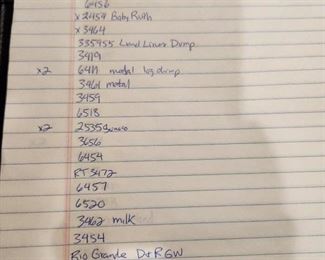 6456
x 2454 Baby Ruth
x 3464
335455 Lend Liner Dump
3419
x2 6411 metal log dump
3461 metal
3459
6518
x2 2535
3656
6454
RT 3472
6457
6520
3462 milk
3454
Rio Grande D&RGW